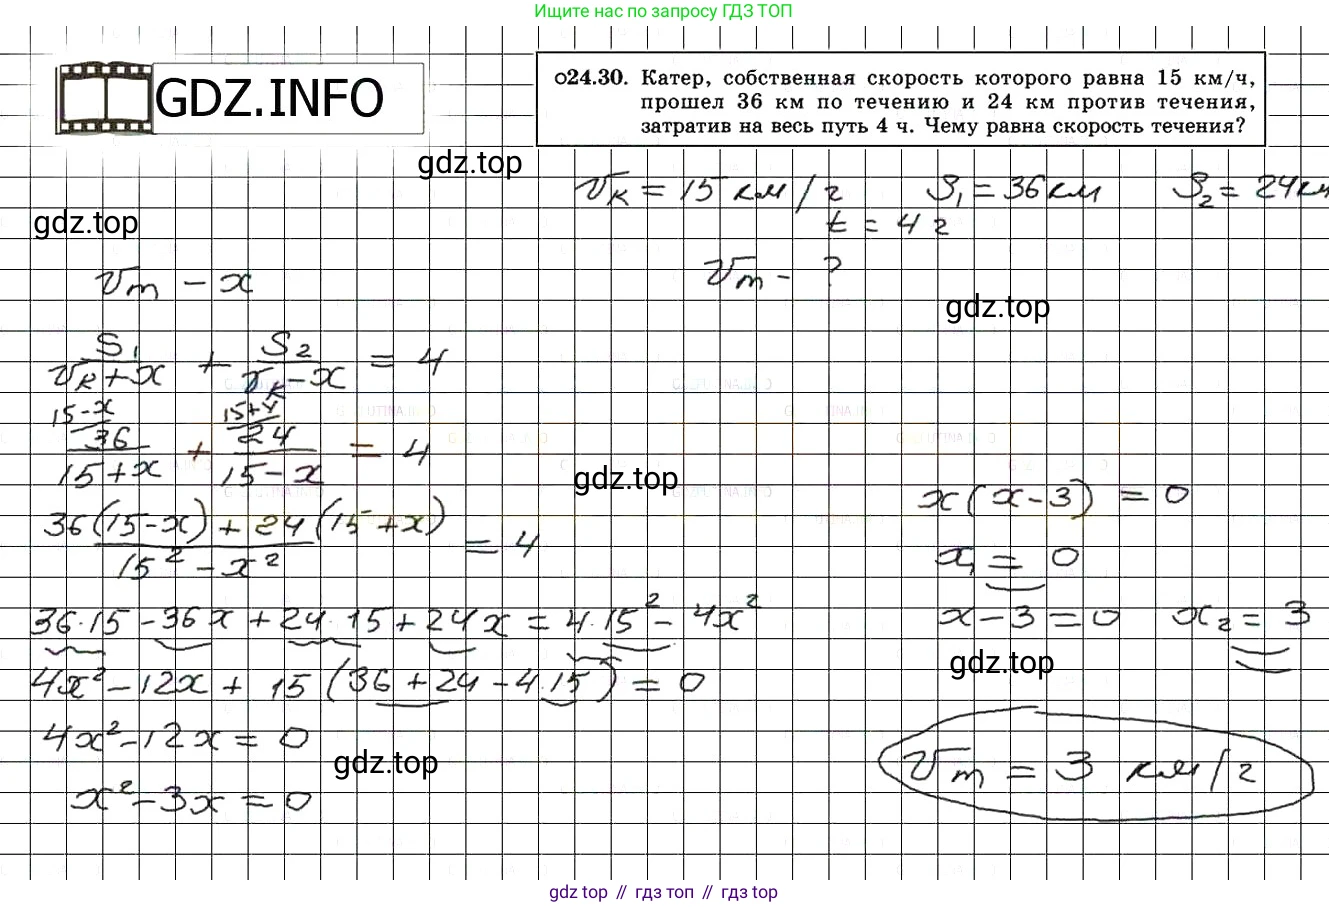 Ищите нас по запросу ГДЗ ТОП
GDZ.INFO
о24.30. Катер, собственная скорость которого равна 15 км/ч,
прошел 36 км по течению и 24 км против течения,
затратив на весь путь 4 ч. Чему равна скорость течения?
gdz.top
Vк = 15 км/ч S₁ = 36 км S₂ = 24 км
t = 4 ч
gdz.top
Vт - ?
Vт - x
gdz.top
S₁/(Vк + x) + S₂/(Vк - x) = 4
15-x 15+x
36/(15+x) + 24/(15-x) = 4
gdz.top
(36(15-x) + 24(15+x))/(15² - x²) = 4
36·15 - 36x + 24·15 + 24x = 4·15² - 4x²
4x² - 12x + 15(36 + 24 - 4·15) = 0
4x² - 12x = 0
gdz.top
x² - 3x = 0
x(x-3) = 0
x₁ = 0
x - 3 = 0 x₂ = 3
gdz.top
Vт = 3 км/ч
gdz top // гдз топ // гдз top